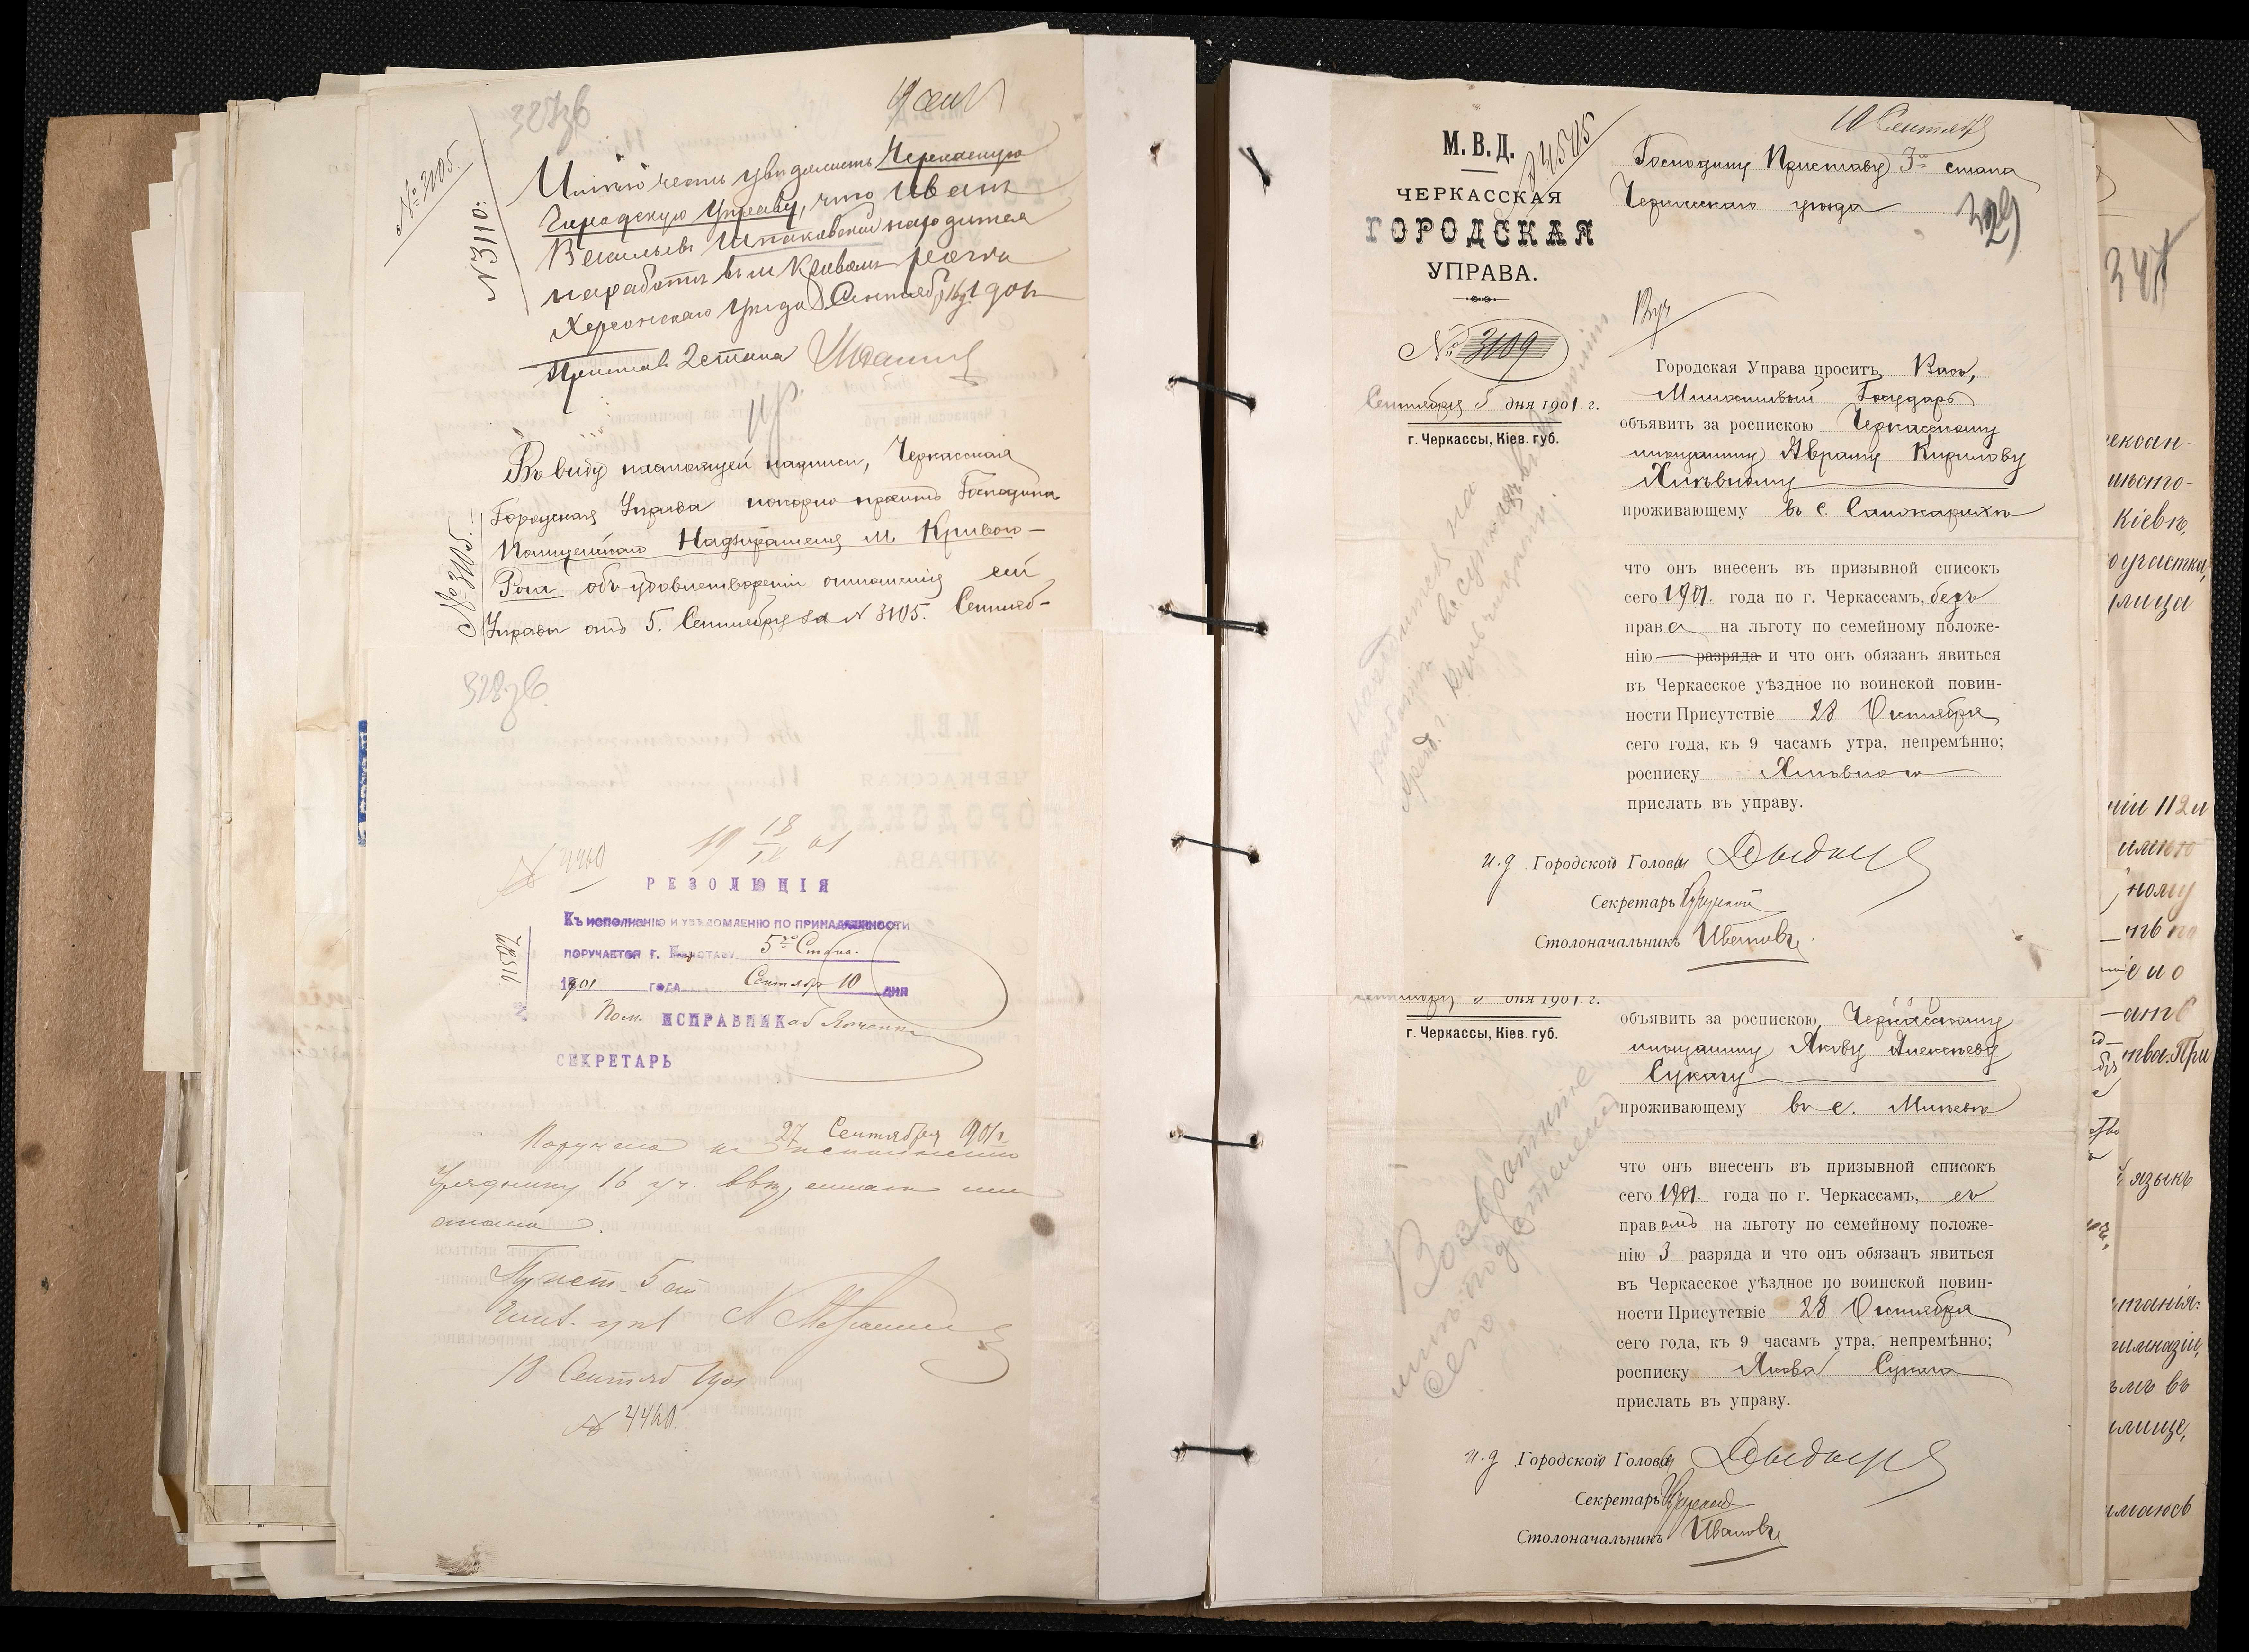 327зв
19 сент
№ 3105.
№ 3110.
Имѣю честь увѣдомить Черкасскую
Городскую Управу, что Иванъ
Васильевъ Шпаковскій находится
на работѣ въ м. Кривомъ
Херсонскаго уѣзда. Сентября 1901 года
Приставъ 2 стана
Въ виду настоящей надписи, Черкасская
Городская Управа покорно проситъ Господина
Полицейскаго Надзирателя м. Кривого-
Рога объ удовлетвореніи отношенія сей
Управы отъ 5. Сентября за № 3105. Сентяб-
№ 3105.
328зв
19 18/IX 01
№ 4460
РЕЗОЛЮЦІЯ
Къ исполненію и увѣдомленію по принадлежности
поручается г. Приставу 5го Стана.
1901 года Сентября 10 дня
Пом. ИСПРАВНИКА
СЕКРЕТАРЬ
27 Сентября 1901 г.
Поручено къ исполненію
Уряднику 16 уч.
стана.
Прист. 5 ст.
18 Сентяб 1901
№ 4460.
10 Сентября
М. В. Д.
№ 4505
ЧЕРКАССКАЯ
ГОРОДСКАЯ
УПРАВА.
№ 3109
Сентября 5 дня 1901 г.
г. Черкассы, Кіев. губ.
Господину Приставу 3го стана
Черкасскаго уѣзда
329
Городская Управа проситъ Васъ,
Милостивый Государь
объявить за роспискою Черкасскому
мѣщанину Авраму Кирилову
Хлѣвному
проживающему въ с.
что онъ внесенъ въ призывной списокъ
сего 1901. года по г. Черкассамъ, безъ
права на льготу по семейному положе-
нію разряда и что онъ обязанъ явиться
въ Черкасское уѣздное по воинской повин-
ности Присутствіе 28 Октября
сего года, къ 9 часамъ утра, непремѣнно;
росписку Хлѣвного
прислать въ управу.
и. д. Городской Головы
Секретарь
Столоначальникъ Ивановъ
Сентября 5 дня 1901 г.
г. Черкассы, Кіев. губ.
объявить за роспискою Черкасскому
мѣщанину Якову Алексѣеву
Сукачу
проживающему въ с. Млѣевѣ
что онъ внесенъ въ призывной списокъ
сего 1901. года по г. Черкассамъ, съ
правомъ на льготу по семейному положе-
нію 3 разряда и что онъ обязанъ явиться
въ Черкасское уѣздное по воинской повин-
ности Присутствіе 28 Октября
сего года, къ 9 часамъ утра, непремѣнно;
росписку Якова Сукача
прислать въ управу.
и. д. Городской Головы
Секретарь
Столоначальникъ Ивановъ
347
Кіевѣ,
участка,
улица
языкъ
гимназіи,